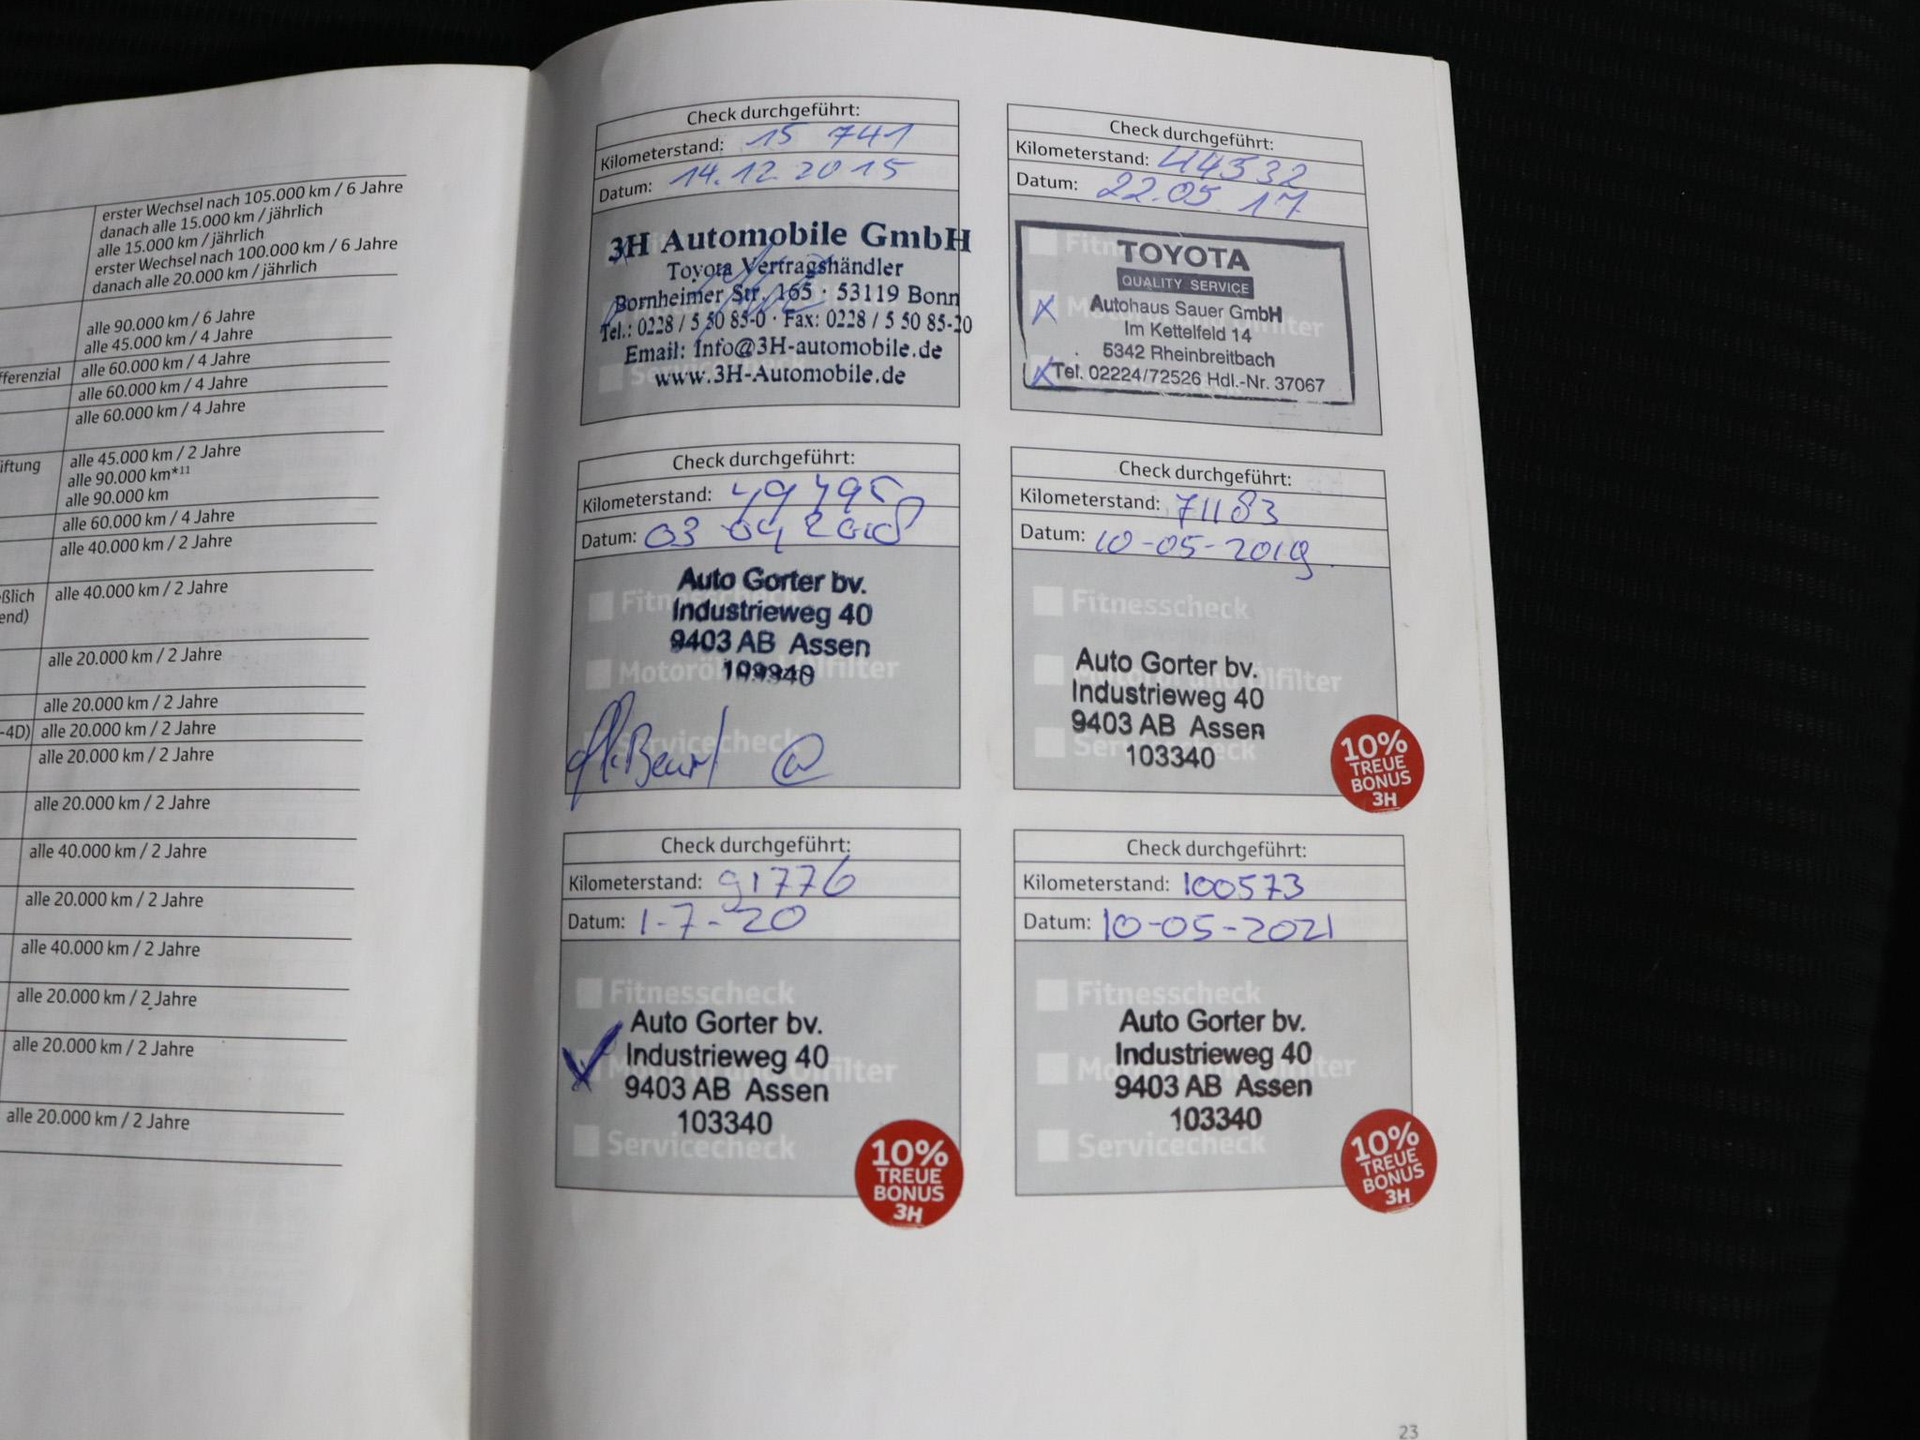 erster Wechsel nach 105.000 km / 6 Jahre
danach alle 15.000 km / jährlich
alle 15.000 km / jährlich
erster Wechsel nach 100.000 km / 6 Jahre
danach alle 20.000 km / jährlich
alle 90.000 km / 6 Jahre
alle 45.000 km / 4 Jahre
fferenzial alle 60.000 km / 4 Jahre
alle 60.000 km / 4 Jahre
alle 60.000 km / 4 Jahre
iftung alle 45.000 km / 2 Jahre
alle 90.000 km*11
alle 90.000 km
alle 60.000 km / 4 Jahre
alle 40.000 km / 2 Jahre
ßlich alle 40.000 km / 2 Jahre
end)
alle 20.000 km / 2 Jahre
alle 20.000 km / 2 Jahre
-4D) alle 20.000 km / 2 Jahre
alle 20.000 km / 2 Jahre
alle 20.000 km / 2 Jahre
alle 40.000 km / 2 Jahre
alle 20.000 km / 2 Jahre
alle 40.000 km / 2 Jahre
alle 20.000 km / 2 Jahre
alle 20.000 km / 2 Jahre
alle 20.000 km / 2 Jahre
Check durchgeführt:
Kilometerstand: 15 741
Datum: 14.12.2015
3H Automobile GmbH
Toyota Vertragshändler
Bornheimer Str. 165 · 53119 Bonn
Tel.: 0228 / 5 50 85-0 · Fax: 0228 / 5 50 85-20
Email: Info@3H-automobile.de
www.3H-Automobile.de
Check durchgeführt:
Kilometerstand: 44532
Datum: 22.05.17
TOYOTA
QUALITY SERVICE
Autohaus Sauer GmbH
Im Kettelfeld 14
5342 Rheinbreitbach
Tel. 02224/72526 Hdl.-Nr. 37067
Check durchgeführt:
Kilometerstand: 49495
Datum: 03 04 2018
Auto Gorter bv.
Industrieweg 40
9403 AB Assen
Servicecheck
Check durchgeführt:
Kilometerstand: 71183
Datum: 10-05-2019
Fitnesscheck
Auto Gorter bv.
Industrieweg 40
9403 AB Assen
103340
Servicecheck
10%
TREUE
BONUS
3H
Check durchgeführt:
Kilometerstand: 91776
Datum: 1-7-20
Fitnesscheck
Auto Gorter bv.
Industrieweg 40
9403 AB Assen
103340
Servicecheck
10%
TREUE
BONUS
3H
Check durchgeführt:
Kilometerstand: 100573
Datum: 10-05-2021
Fitnesscheck
Auto Gorter bv.
Industrieweg 40
9403 AB Assen
103340
Servicecheck
10%
TREUE
BONUS
3H
23